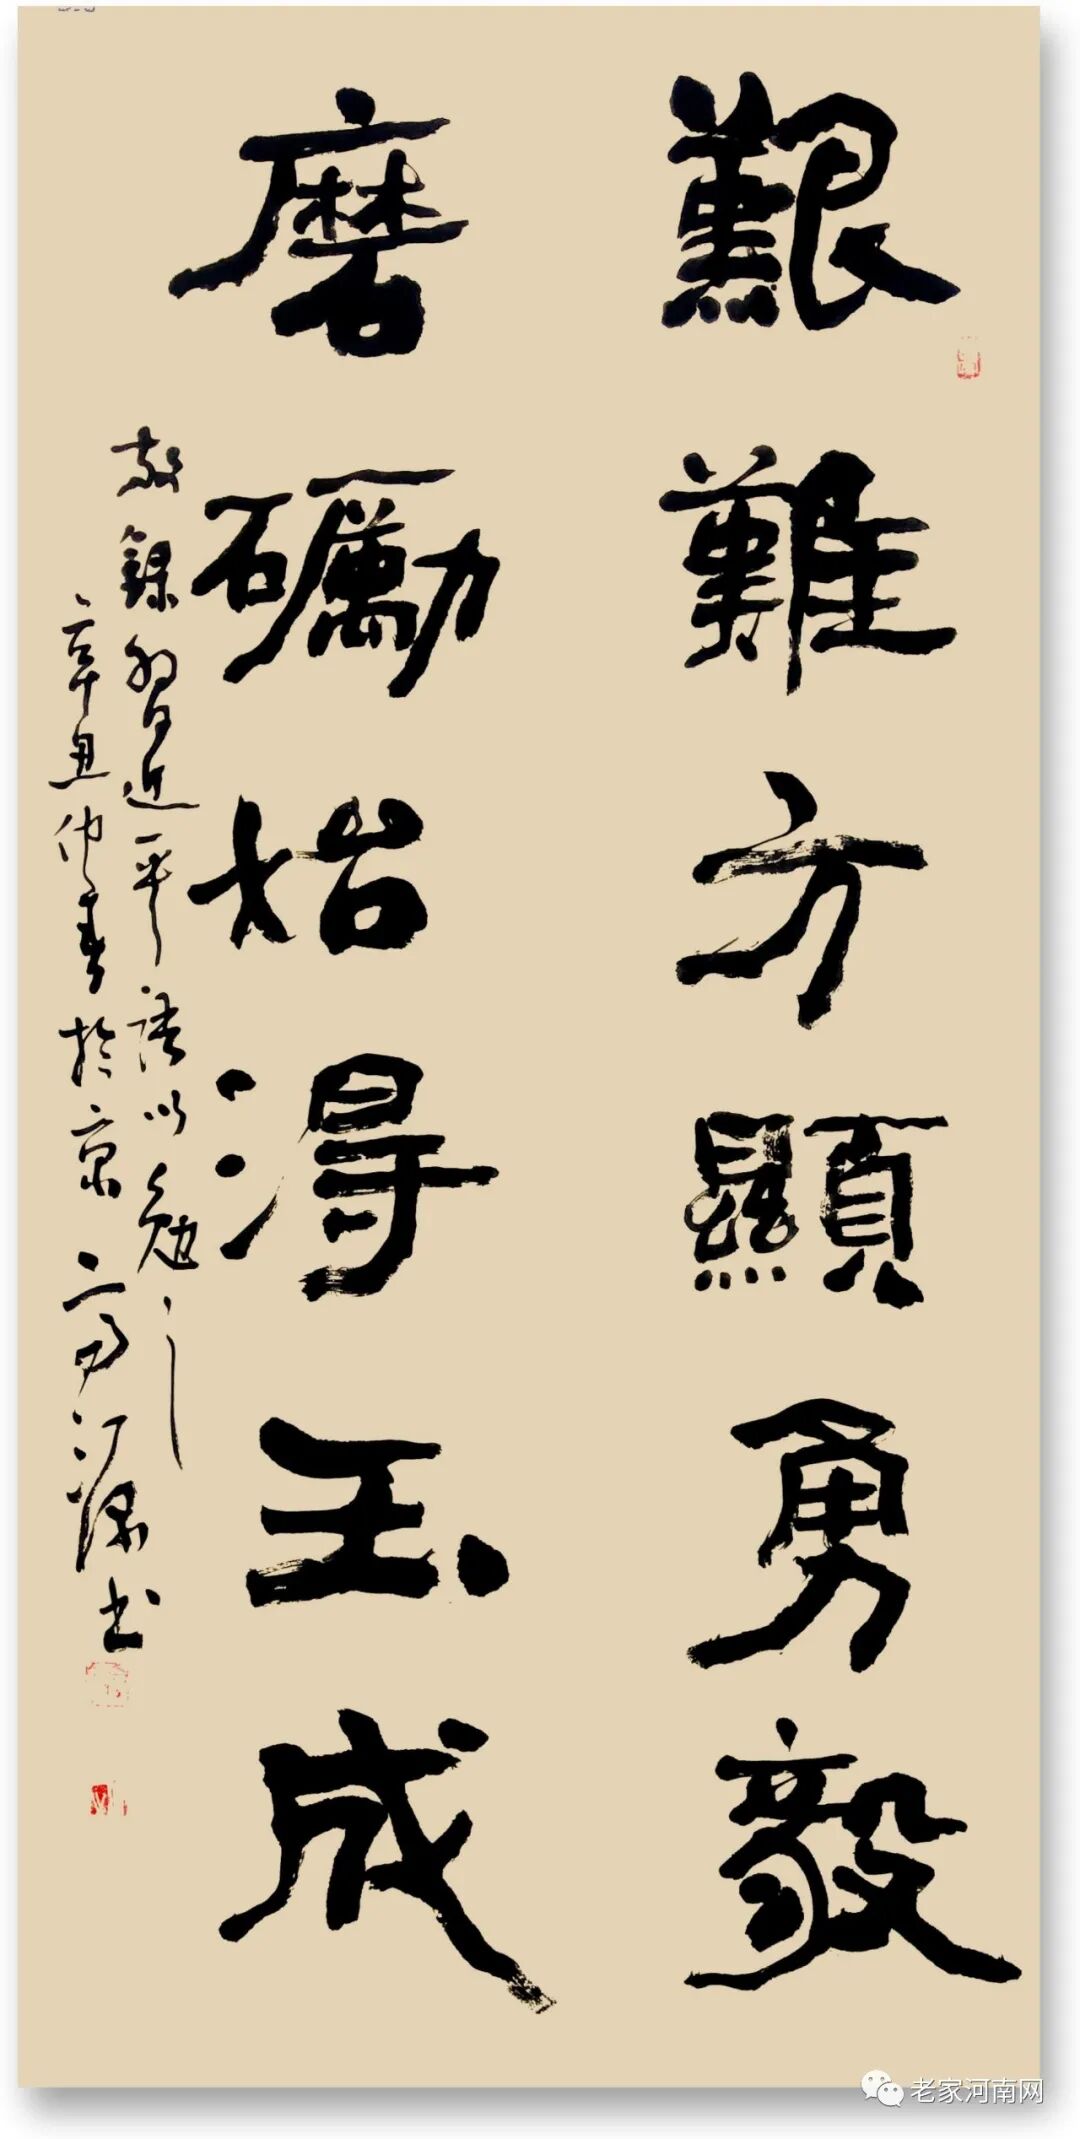 艱難方顯勇毅
磨礪始得玉成
敬錄習近平語以勉之
辛丑仲春於京
书
老家河南网